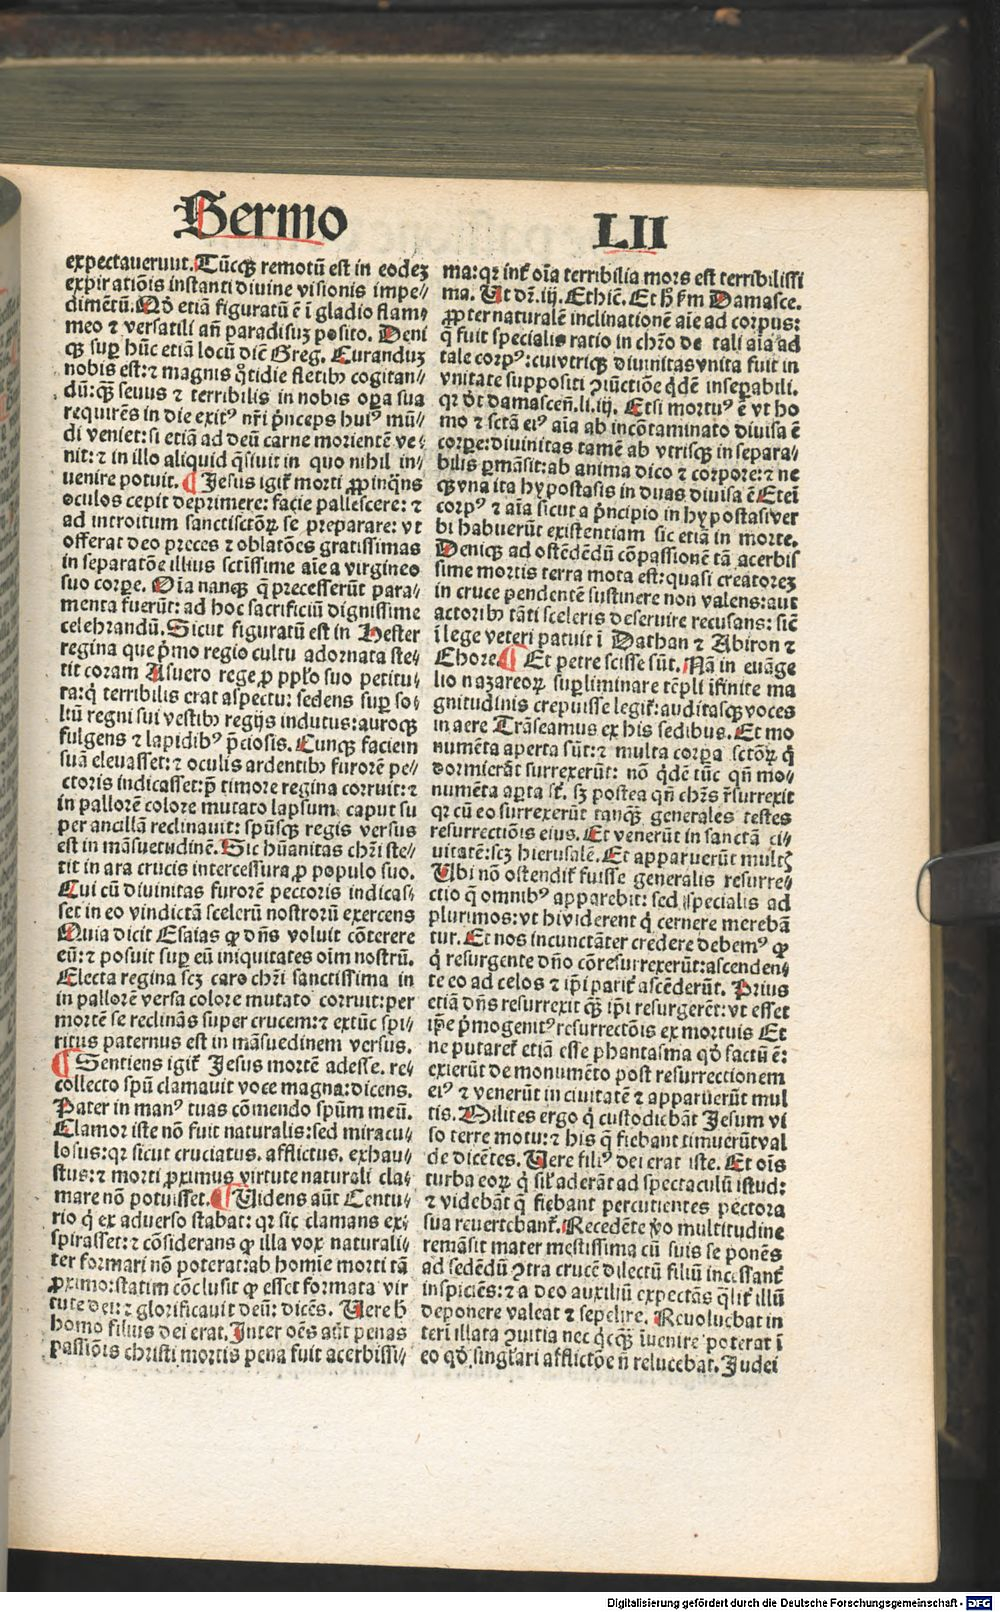 Sermo
LII
expectauerunt. Tūcqꝫ remotū est in eodeꝫ
expiratiōis instanti diuine visionis impe⸗
dimētū. Qd̓ etiā figuratū ē ī gladio flam⸗
meo ⁊ versatili añ paradisuꝫ posito. Deni
qꝫ sup̱ hūc etiā locū diē Greg. Curanduꝫ
nobis est: ⁊ magnis q̊tidie fletibꝫ cogitan⸗
dū: qꝫ seuus ⁊ terribilis in nobis oꝑa sua
requirēs in die exitꝰ nr̄i p̓nceps huiꝰ mū⸗
di veniet: si etiā ad deū carne morientē ve⸗
nit: ⁊ in illo aliquid q̄siuit in quo nihil in⸗
uenire potuit. ¶ Jesus igit̃ morti ꝓpinq̄ns
oculos cepit deprimere: facie pallescere: ⁊
ad introitum sanctisctōꝝ se preparare: vt
offerat deo preces ⁊ oblatōes gratissimas
in separatōe illius sctīssime aīe a virgineo
suo corpꝑe. Oīa nanqꝫ q̄ precesserūt para⸗
menta fuerūt: ad hoc sacrificiū dignissime
celebrandū. Sicut figuratū est in Hester
regina que p̓mo regio cultu adornata ste⸗
tit coram Asuero rege ꝓ pplo suo petitu⸗
ra: q̓ terribilis erat aspectu: sedens sup̱ so⸗
liū regni sui vestibꝫ regijs indutus: auroqꝫ
fulgens ⁊ lapidibꝰ p̄ciosis. Cunqꝫ faciem
suā eleuasset: ⁊ oculis ardentibꝫ furorē pe⸗
ctoris indicasset: p̄ timore regina corruit: ⁊
in pallorē colore mutato lapsum caput su
per ancillā reclinauit: spūsqꝫ regis versus
est in māsuetudinē. Sic hūanitas chr̄i ste⸗
tit in ara crucis intercessura ꝓ populo suo.
Cui cū diuinitas furorē pectoris indicas⸗
set in eo vindictā scelerū nostrorū exercens
Quia dicit Esaias ꝙ dñs voluit cōterere
eū: ⁊ posuit sup̱ eū iniquitates oīm nostrū.
Electa regina scꝫ caro chr̄i sanctissima in
in pallorē versa colore mutato corruit: per
mortē se reclinās super crucem: ⁊ extūc spi⸗
ritus paternus est in māsuedinem versus.
¶ Sentiens igit̃ Jesus mortē adesse. re⸗
collecto spū clamauit voce magna: dicens.
Pater in manꝰ tuas cōmendo spūm meū.
Clamor iste nō fuit naturalis: sed miracu⸗
losus: qꝛ sicut cruciatus. afflictus. exhau⸗
stus: ⁊ morti ꝓximus virtute naturali cla⸗
mare nō potuisset. ¶ Uidens aūt Centu⸗
rio q̓ ex aduerso stabat: qꝛ sic clamans ex⸗
spirasset: ⁊ cōsiderans ꝙ illa vox naturali⸗
ter formari nō poterat: ab homīe morti tā
ꝓximo: statim cōclusit ꝙ esset formata vir
tute dei: ⁊ glorificauit deū: dicēs. Uere h̄
homo filius dei erat. Inter oēs aūt penas
passiōis christi mortis pena fuit acerbissi⸗
ma: qꝛ int̃ oīa terribilia mors est terribilissi
ma. Ut dr̄. iij. Ethic̄. Et h̄ ẜm Damasce.
ꝓpter naturalē inclinationē aīe ad corpus:
q̄ fuit specialis ratio in chr̄o de tali aīa ad
tale corpꝰ: cui vtriqꝫ diuinitas vnita fuit in
vnitate suppositi ꝯiūctiōe q̓dē inseꝑabili.
qꝛ v̓t damascen̄. li. iij. Etsi mortuꝰ ē vt ho
mo ⁊ sctā eiꝰ aīa ab incōtaminato diuisa ē
corꝑe: diuinitas tamē ab vtrisqꝫ in separa⸗
bilis ꝑmāsit: ab anima dico ⁊ corpore: ⁊ ne
qꝫ vna ita hypostasis in duas diuisa ē. Eteī
corpꝰ ⁊ aīa sicut a p̓ncipio in hypostasi ver
bi habuerūt existentiam sic etiā in morte.
Deniqꝫ ad ostēdēdū cōpassionē tā acerbis
sime mortis terra mota est: quasi creatoreꝫ
in cruce pendentē sustinere non valens: aut
actoribꝫ tāti sceleris deseruire recusans: sic̄
ī lege veteri patuit ī Dathan ⁊ Abiron ⁊
Chore. ¶ Et petre scisse sūt. Nā in euāge
lio nazareoꝝ supliminare tēpli īfinite ma
gnitudinis crepuisse legit̃: auditasqꝫ voces
in aere Trāseamus ex his sedibus. Et mo
numēta aperta sūt: ⁊ multa corꝑa sctōꝝ q̓
dormierāt surrexerūt: nō q̓dē tūc qñ mo⸗
numēta aꝑta sūt. sꝫ postea qñ chr̄s r̄surrexit
qꝛ cū eo surrexerūt tanqꝫ generales testes
resurrectiōis eius. Et venerūt in sanctā ci⸗
uitatē: scꝫ hierusalē. Et apparuerūt multꝭ
Ubi nō ostendit̃ fuisse generalis resurre⸗
ctio q̄ omnibꝰ apparebit: sed specialis ad
plurimos: vt hi viderent q̓ cernere merebā
tur. Et nos incunctāter credere debemꝰ ꝙ
q̓ resurgente dño cōresurrexerūt: ascenden⸗
te eo ad celos ⁊ ip̄i parit̃ ascēderūt. Prius
etiā dñs resurrexit qꝫ ip̄i resurgerēt: vt esset
ip̄e p̓mogenitꝰ resurrectōis ex mortuis Et
ne putaret̃ etiā esse phantasma qd̓ factū ē:
exierūt de monumēto post resurrectionem
eiꝰ ⁊ venerūt in ciuitatē ⁊ apparuerūt mul
tis. Milites ergo q̓ custodiebāt Jesum vi
so terre motu: ⁊ his q̄ fiebant timuerūt val
de dicētes. Uere filiꝰ dei erat iste. Et oīs
turba eoꝝ q̓ sil̄ aderāt ad spectaculū istud:
⁊ videbāt q̄ fiebant percutientes pectora
sua reuertebant̃. Recedēte v̓o multitudine
remāsit mater mestissima cū suis se ponēs
ad sedēdū ꝯtra crucē dilectū filiū incessant̃
inspiciēs: ⁊ a deo auxiliū expectās q̄lit̃ illū
deponere valeat ⁊ sepelire. Reuoluebat in
teri illata ꝯuitia nec q̓cqꝫ īuenire poterat ī
eo qd̓ singl̓ari afflictōe n̄ relucebat. Judei
Digitalisierung gefördert durch die Deutsche Forschungsgemeinschaft - DFG